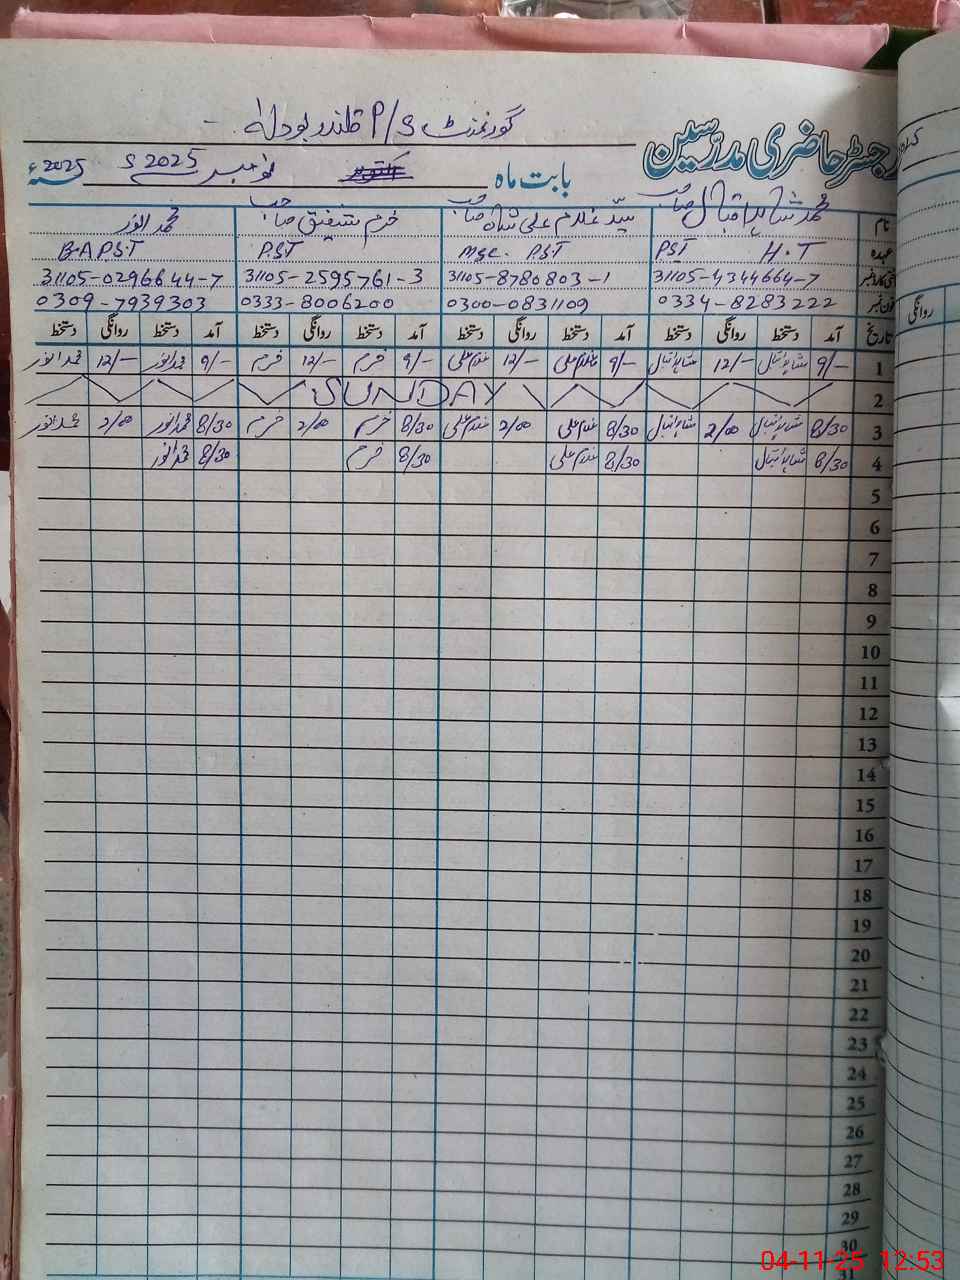 گورنمنٹ P/S قلندر بودلہ
رجسٹر حاضری مدرسین
بابت ماہ اکتوبر نومبر 2025 ء 2025ء
نام محمد شاہد اقبال صاحب سید غلام علی شاہ صاحب خرم شفیق صاحب محمد انور
عہدہ H.T PST MSc. P.ST P.ST B.A P.S.T
شناختی کارڈ نمبر 31105-4344664-7 31105-8780803-1 31105-2595761-3 31105-0296644-7
فون نمبر 0334-8283222 0300-0831109 0333-8006200 0309-7939303
تاریخ آمد دستخط روانگی دستخط آمد دستخط روانگی دستخط آمد دستخط روانگی دستخط آمد دستخط روانگی دستخط
1 9/- شاہد اقبال 12/- شاہد اقبال 9/- غلام علی 12/- غلام علی 9/- خرم 12/- خرم 9/- محمد انور 12/- محمد انور
2 SUNDAY
3 8/30 شاہد اقبال 2/00 شاہد اقبال 8/30 غلام علی 2/00 غلام علی 8/30 خرم 2/00 خرم 8/30 محمد انور 2/00 محمد انور
4 8/30 شاہد اقبال 8/30 غلام علی 8/30 خرم 8/30 محمد انور
5
6
7
8
9
10
11
12
13
14
15
16
17
18
19
20
21
22
23
24
25
26
27
28
29
30
روانگی
04-11-25 12:53